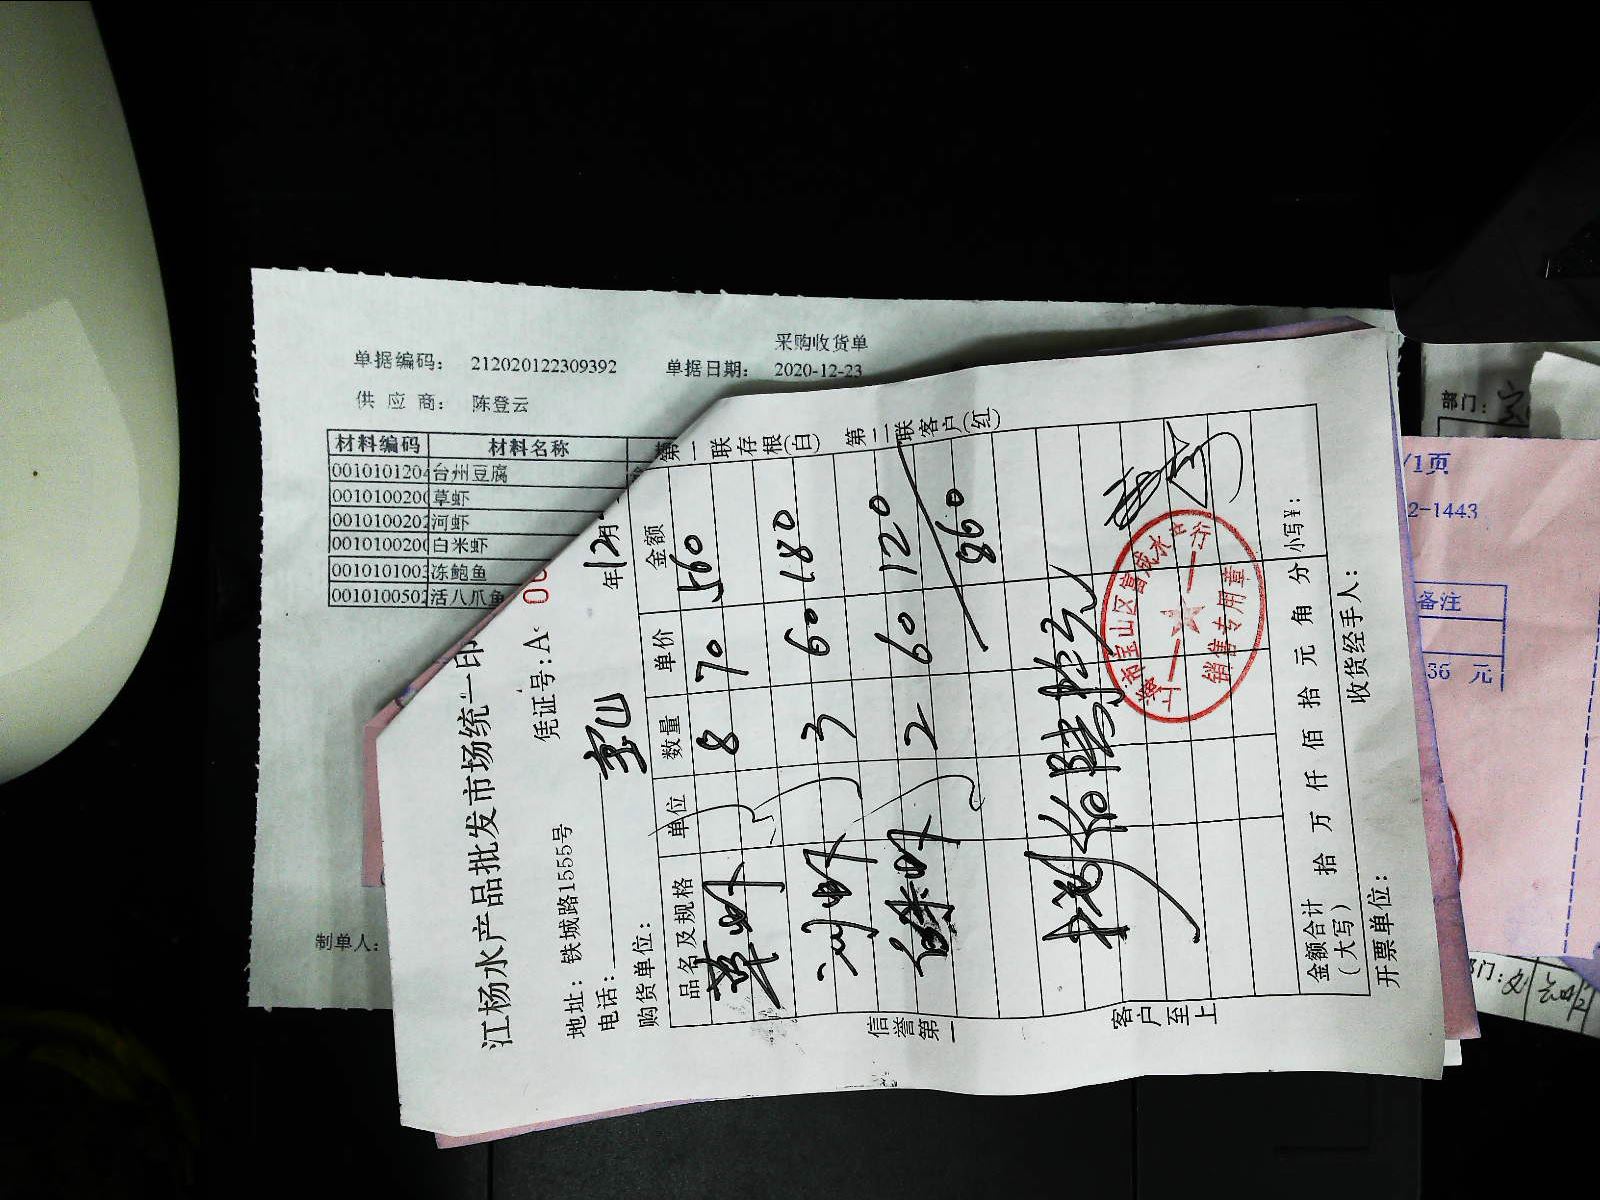 采购收货单
单据编码： 212020122309392 单据日期： 2020-12-23
供 应 商： 陈登云
材料编码 材料名称
0010101204 台州豆腐
001010020 草虾
001010020 河虾
001010020 白米虾
001010100 冻鲍鱼
001010050 活八爪鱼
制单人：
江杨水产品批发市场统一印
凭证号：A
地址：铁城路1555号
电话：
年12月
购货单位：
品名及规格 单位 数量 单价 金额
草虾 8 70 560
河虾 3 60 180
白米虾 2 60 120
860
捌佰陆拾元
金额合计（大写） 拾 万 仟 佰 拾 元 角 分 小写¥：
开票单位： 收货经手人：
第一联存根(白) 第二联客户(红)
信誉第一
客户至上
销售专用章
部门：
/1页
2-1443
备注
元